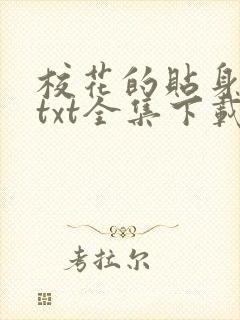 校花的貼身
txt全集下載
考拉尔